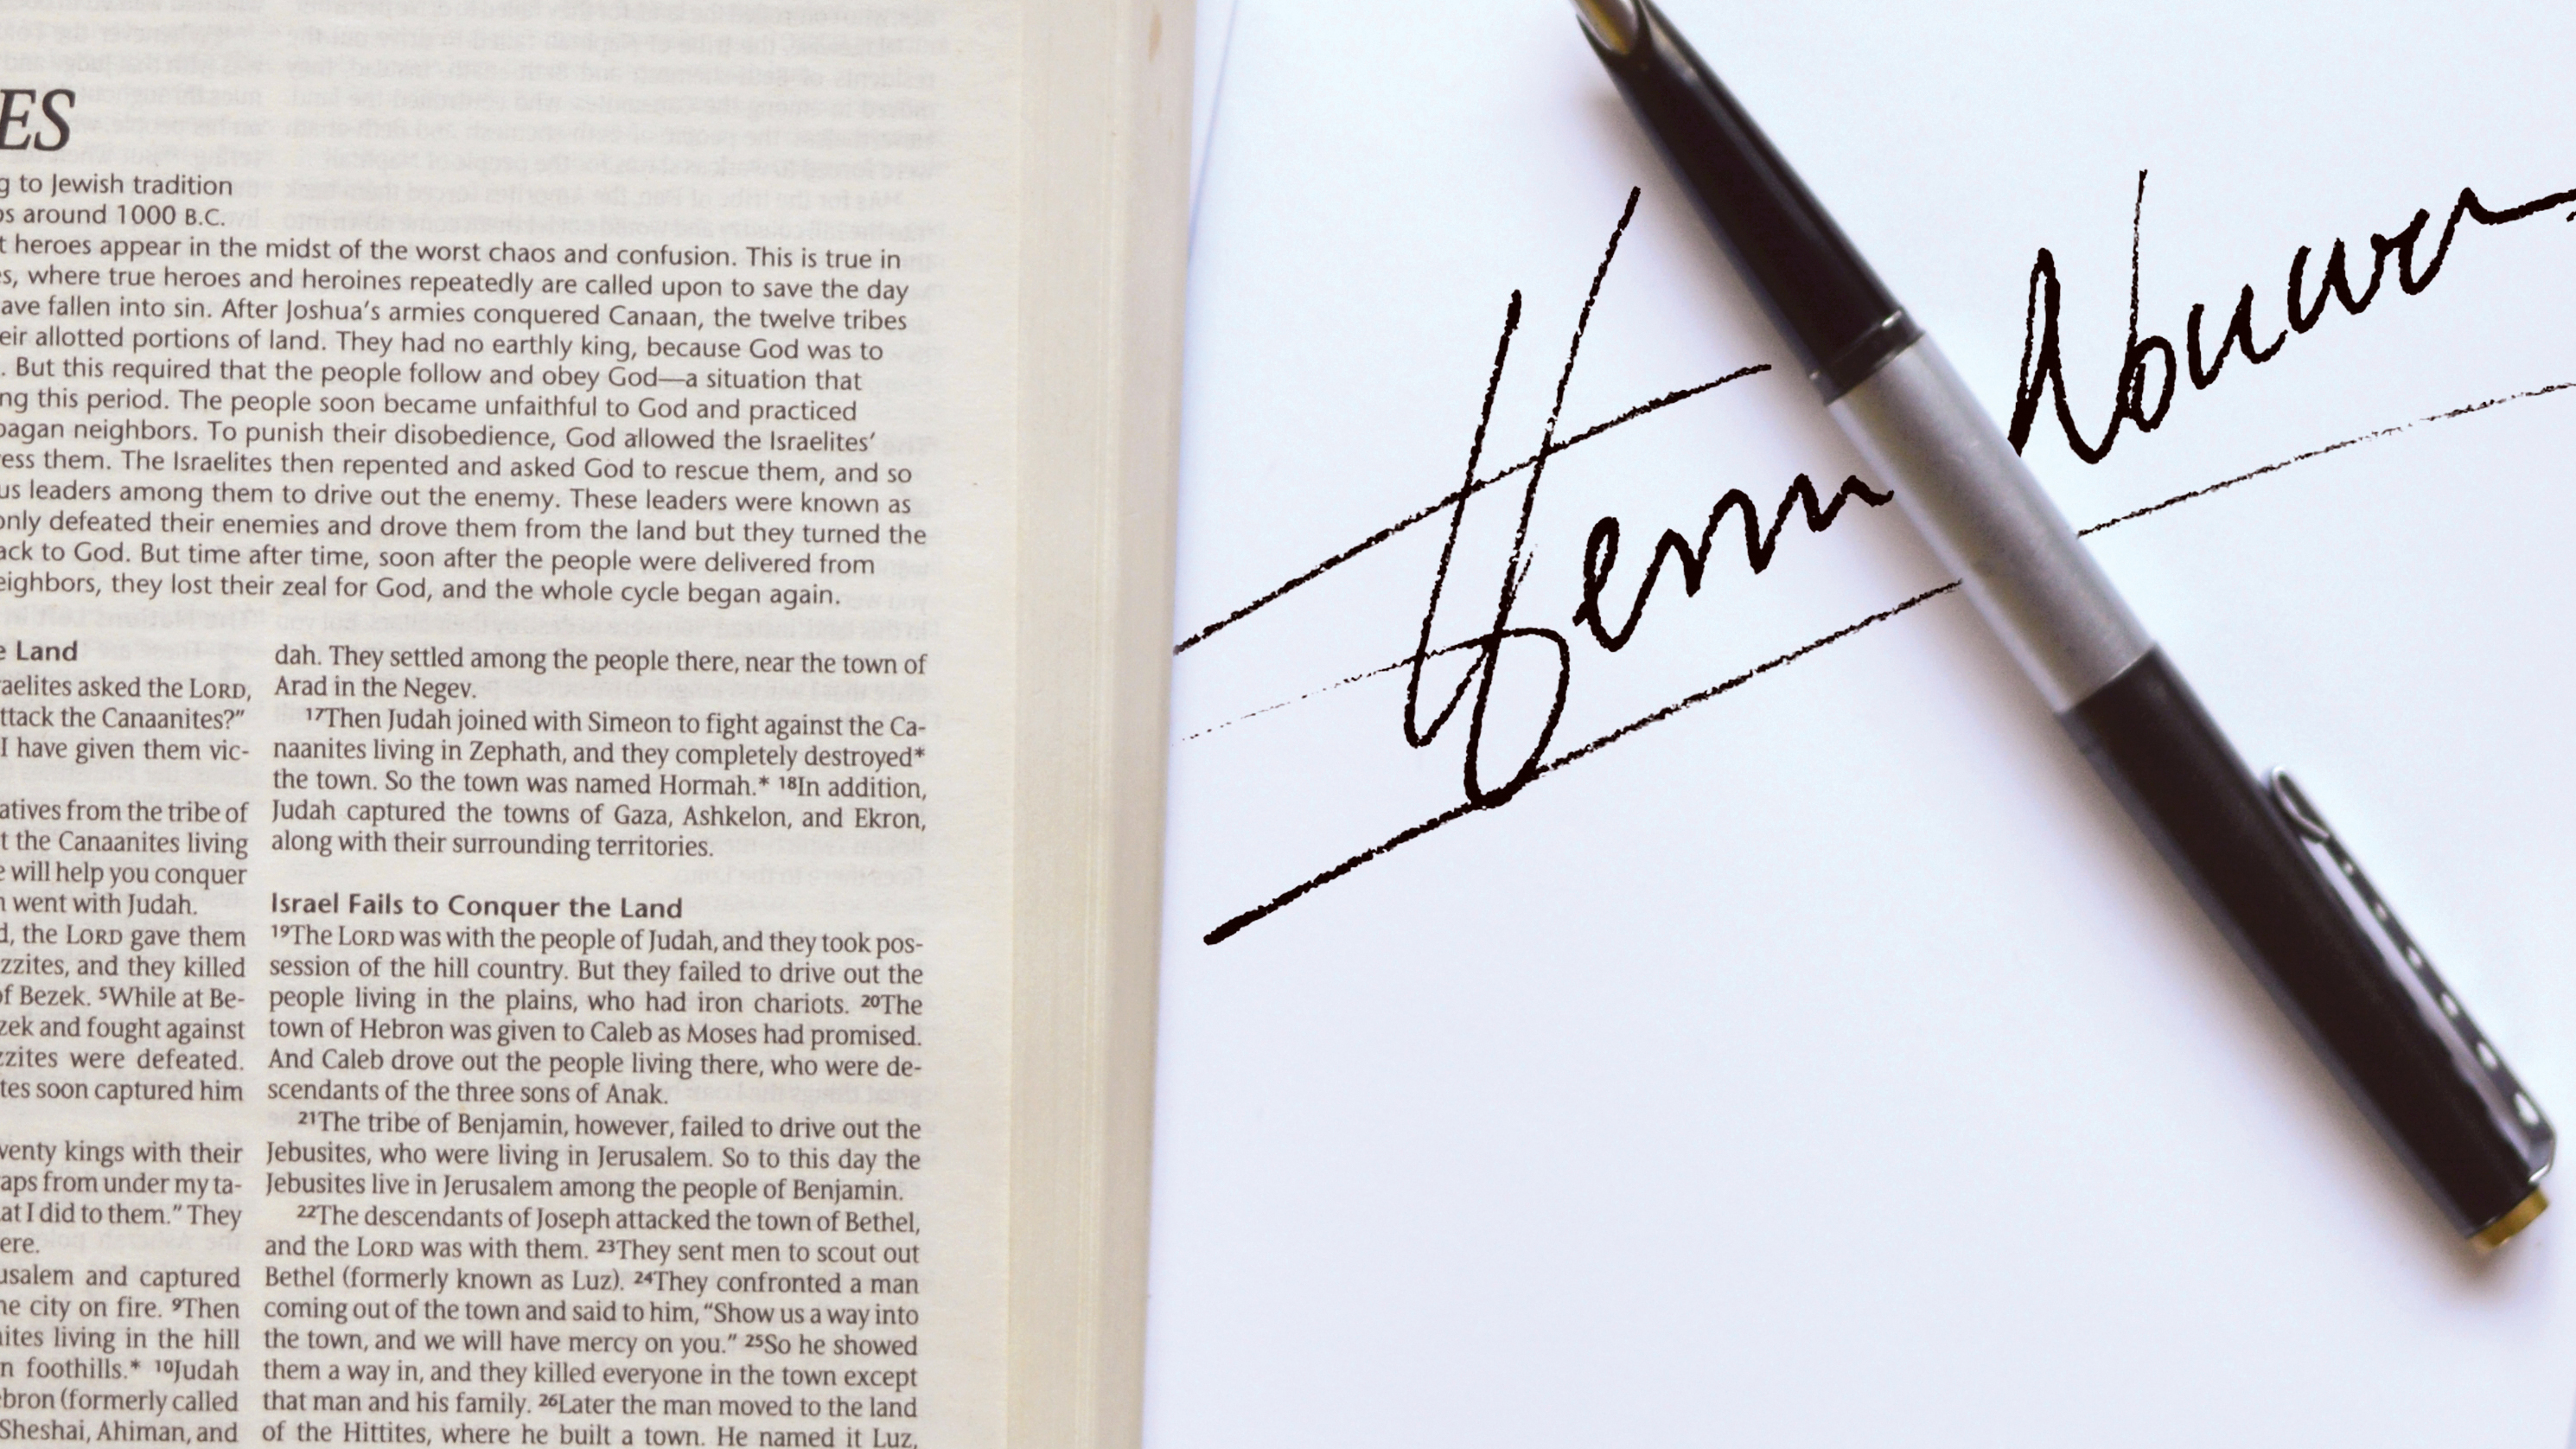 ES
g to Jewish tradition
os around 1000 B.C.
t heroes appear in the midst of the worst chaos and confusion. This is true in
es, where true heroes and heroines repeatedly are called upon to save the day
ave fallen into sin. After Joshua's armies conquered Canaan, the twelve tribes
eir allotted portions of land. They had no earthly king, because God was to
. But this required that the people follow and obey God—a situation that
ng this period. The people soon became unfaithful to God and practiced
pagan neighbors. To punish their disobedience, God allowed the Israelites'
ess them. The Israelites then repented and asked God to rescue them, and so
us leaders among them to drive out the enemy. These leaders were known as
only defeated their enemies and drove them from the land but they turned the
ack to God. But time after time, soon after the people were delivered from
eighbors, they lost their zeal for God, and the whole cycle began again.
e Land
raelites asked the LORD,
ttack the Canaanites?"
I have given them vic-
atives from the tribe of
t the Canaanites living
e will help you conquer
n went with Judah.
d, the LORD gave them
zzites, and they killed
of Bezek. 5While at Be-
zek and fought against
zzites were defeated.
tes soon captured him
venty kings with their
aps from under my ta-
at I did to them." They
ere.
usalem and captured
he city on fire. 9Then
nites living in the hill
n foothills.* 10Judah
ebron (formerly called
Sheshai, Ahiman, and
dah. They settled among the people there, near the town of
Arad in the Negev.
17Then Judah joined with Simeon to fight against the Ca-
naanites living in Zephath, and they completely destroyed*
the town. So the town was named Hormah.* 18In addition,
Judah captured the towns of Gaza, Ashkelon, and Ekron,
along with their surrounding territories.
Israel Fails to Conquer the Land
19The LORD was with the people of Judah, and they took pos-
session of the hill country. But they failed to drive out the
people living in the plains, who had iron chariots. 20The
town of Hebron was given to Caleb as Moses had promised.
And Caleb drove out the people living there, who were de-
scendants of the three sons of Anak.
21The tribe of Benjamin, however, failed to drive out the
Jebusites, who were living in Jerusalem. So to this day the
Jebusites live in Jerusalem among the people of Benjamin.
22The descendants of Joseph attacked the town of Bethel,
and the LORD was with them. 23They sent men to scout out
Bethel (formerly known as Luz). 24They confronted a man
coming out of the town and said to him, "Show us a way into
the town, and we will have mercy on you." 25So he showed
them a way in, and they killed everyone in the town except
that man and his family. 26Later the man moved to the land
of the Hittites, where he built a town. He named it Luz,